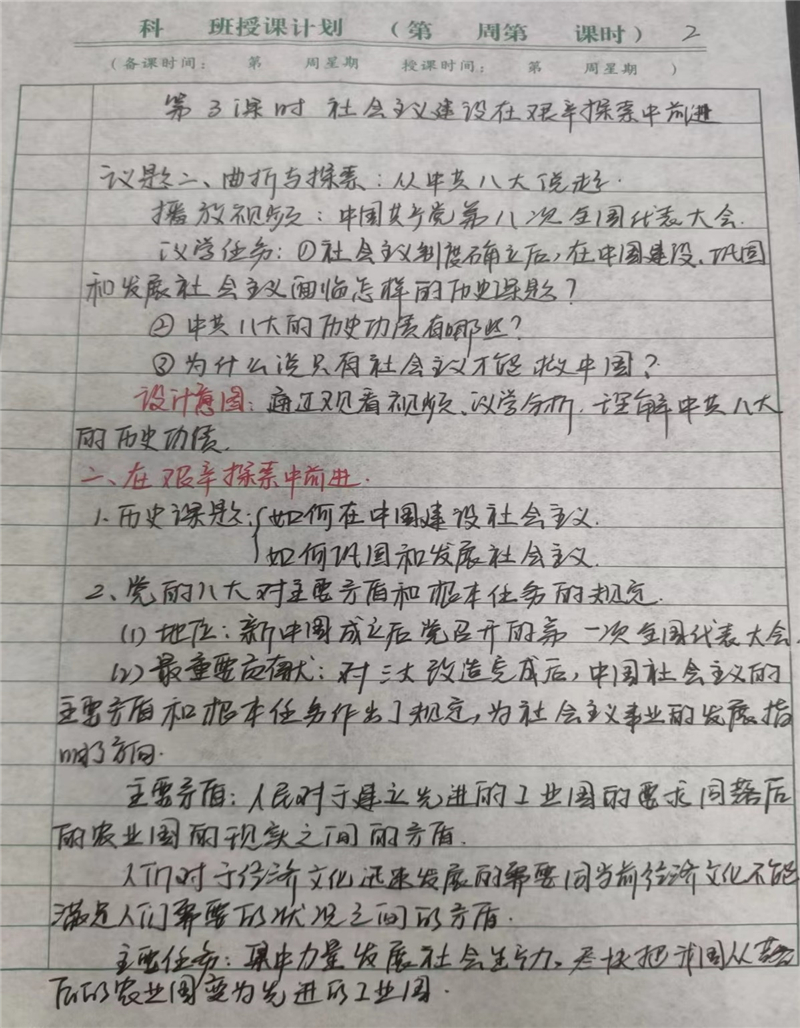 科 班授课计划 （第 周第 课时） 2
（备课时间： 第 周星期 授课时间： 第 周星期 ）
第3课时 社会主义建设在艰辛探索中前进
议题二、曲折与探索：从中共八大说起.
播放视频：中国共产党第八次全国代表大会.
议学任务：①社会主义制度确立后，在中国建设、巩固
和发展社会主义面临怎样的历史课题？
②中共八大的历史功绩有哪些？
③为什么说只有社会主义才能救中国？
设计意图：通过观看视频、议学分析，理解中共八大
的历史功绩.
二、在艰辛探索中前进.
1.历史课题：{如何在中国建设社会主义.
如何巩固和发展社会主义.
2、党的八大对主要矛盾和根本任务的规定.
(1)地位：新中国成立后党召开的第一次全国代表大会.
(2)最重要贡献：对三大改造完成后，中国社会主义的
主要矛盾和根本任务作出了规定，为社会主义事业的发展指
明了方向.
主要矛盾：人民对于建立先进的工业国的要求同落后
的农业国的现实之间的矛盾.
人们对于经济文化迅速发展的需要同当前经济文化不能
满足人们需要的状况之间的矛盾.
主要任务：集中力量发展社会生产力、尽快把我国从落
后的农业国变为先进的工业国.